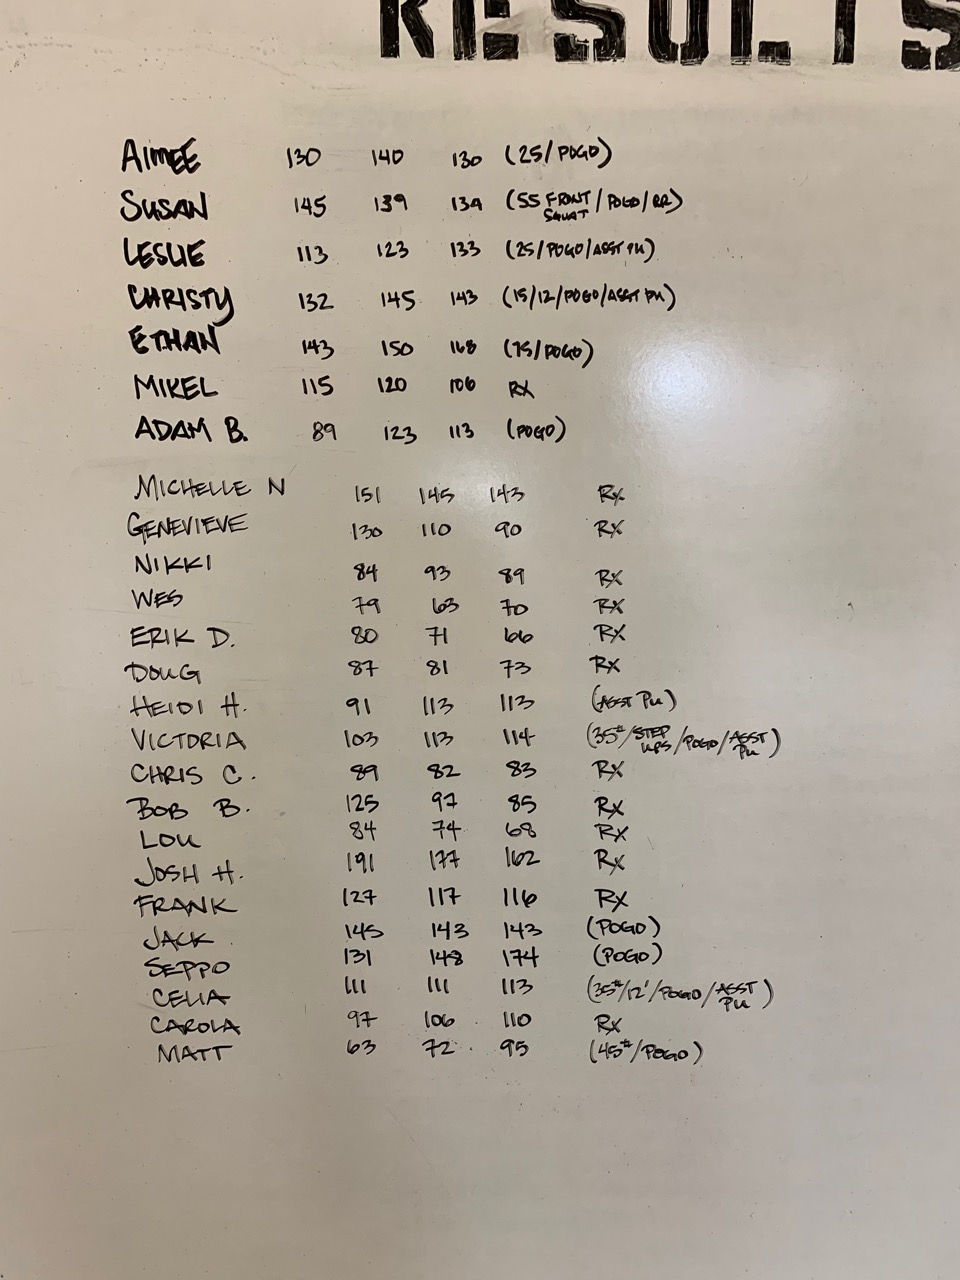 RESULTS
AIMEE 130 140 130 (25/POGO)
SUSAN 145 139 139 (55 FRONT SQUAT/POGO/RR)
LESLIE 113 123 133 (25/POGO/ASST PU)
CHRISTY 132 145 143 (15/12/POGO/ASST PU)
ETHAN 143 150 168 (75/POGO)
MIKEL 115 120 106 RX
ADAM B. 89 123 113 (POGO)
MICHELLE N 151 145 143 RX
GENEVIEVE 130 110 90 RX
NIKKI 84 93 89 RX
WES 79 63 70 RX
ERIK D. 80 71 66 RX
DOUG 87 81 73 RX
HEIDI H. 91 113 113 (ASST PU)
VICTORIA 103 113 114 (35#/STEP UPS/POGO/ASST PU)
CHRIS C. 89 82 83 RX
BOB B. 125 97 85 RX
LOU 84 74 68 RX
JOSH H. 191 177 162 RX
FRANK 127 117 116 RX
JACK 145 143 143 (POGO)
SEPPO 131 148 174 (POGO)
CELIA 111 111 113 (35#/12'/POGO/ASST PU)
CAROLA 97 106 110 RX
MATT 63 72 95 (45#/POGO)